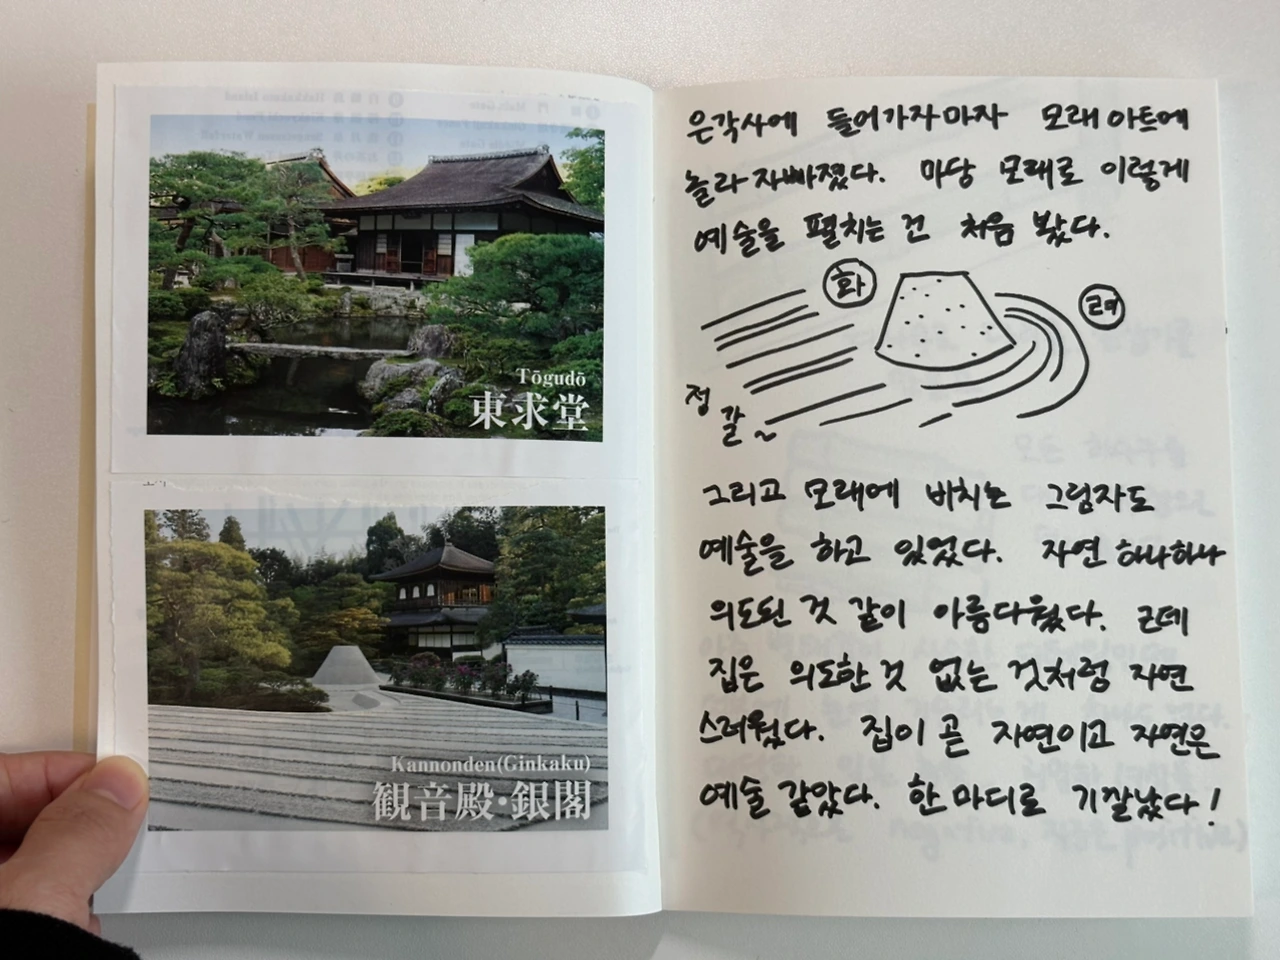 Tōgudō
東求堂
Kannonden(Ginkaku)
観音殿・銀閣
은각사에 들어가자마자 모래아트에
놀라자빠졌다. 마당 모래로 이렇게
예술을 펼치는 건 처음 봤다.
화
려
정
갈~
그리고 모래에 비치는 그림자도
예술을 하고 있었다. 자연 하나하나
의도된 것 같이 아름다웠다. 근데
집은 의도한 것 없는 것처럼 자연
스러웠다. 집이 곧 자연이고 자연은
예술 같았다. 한마디로 기깔났다!